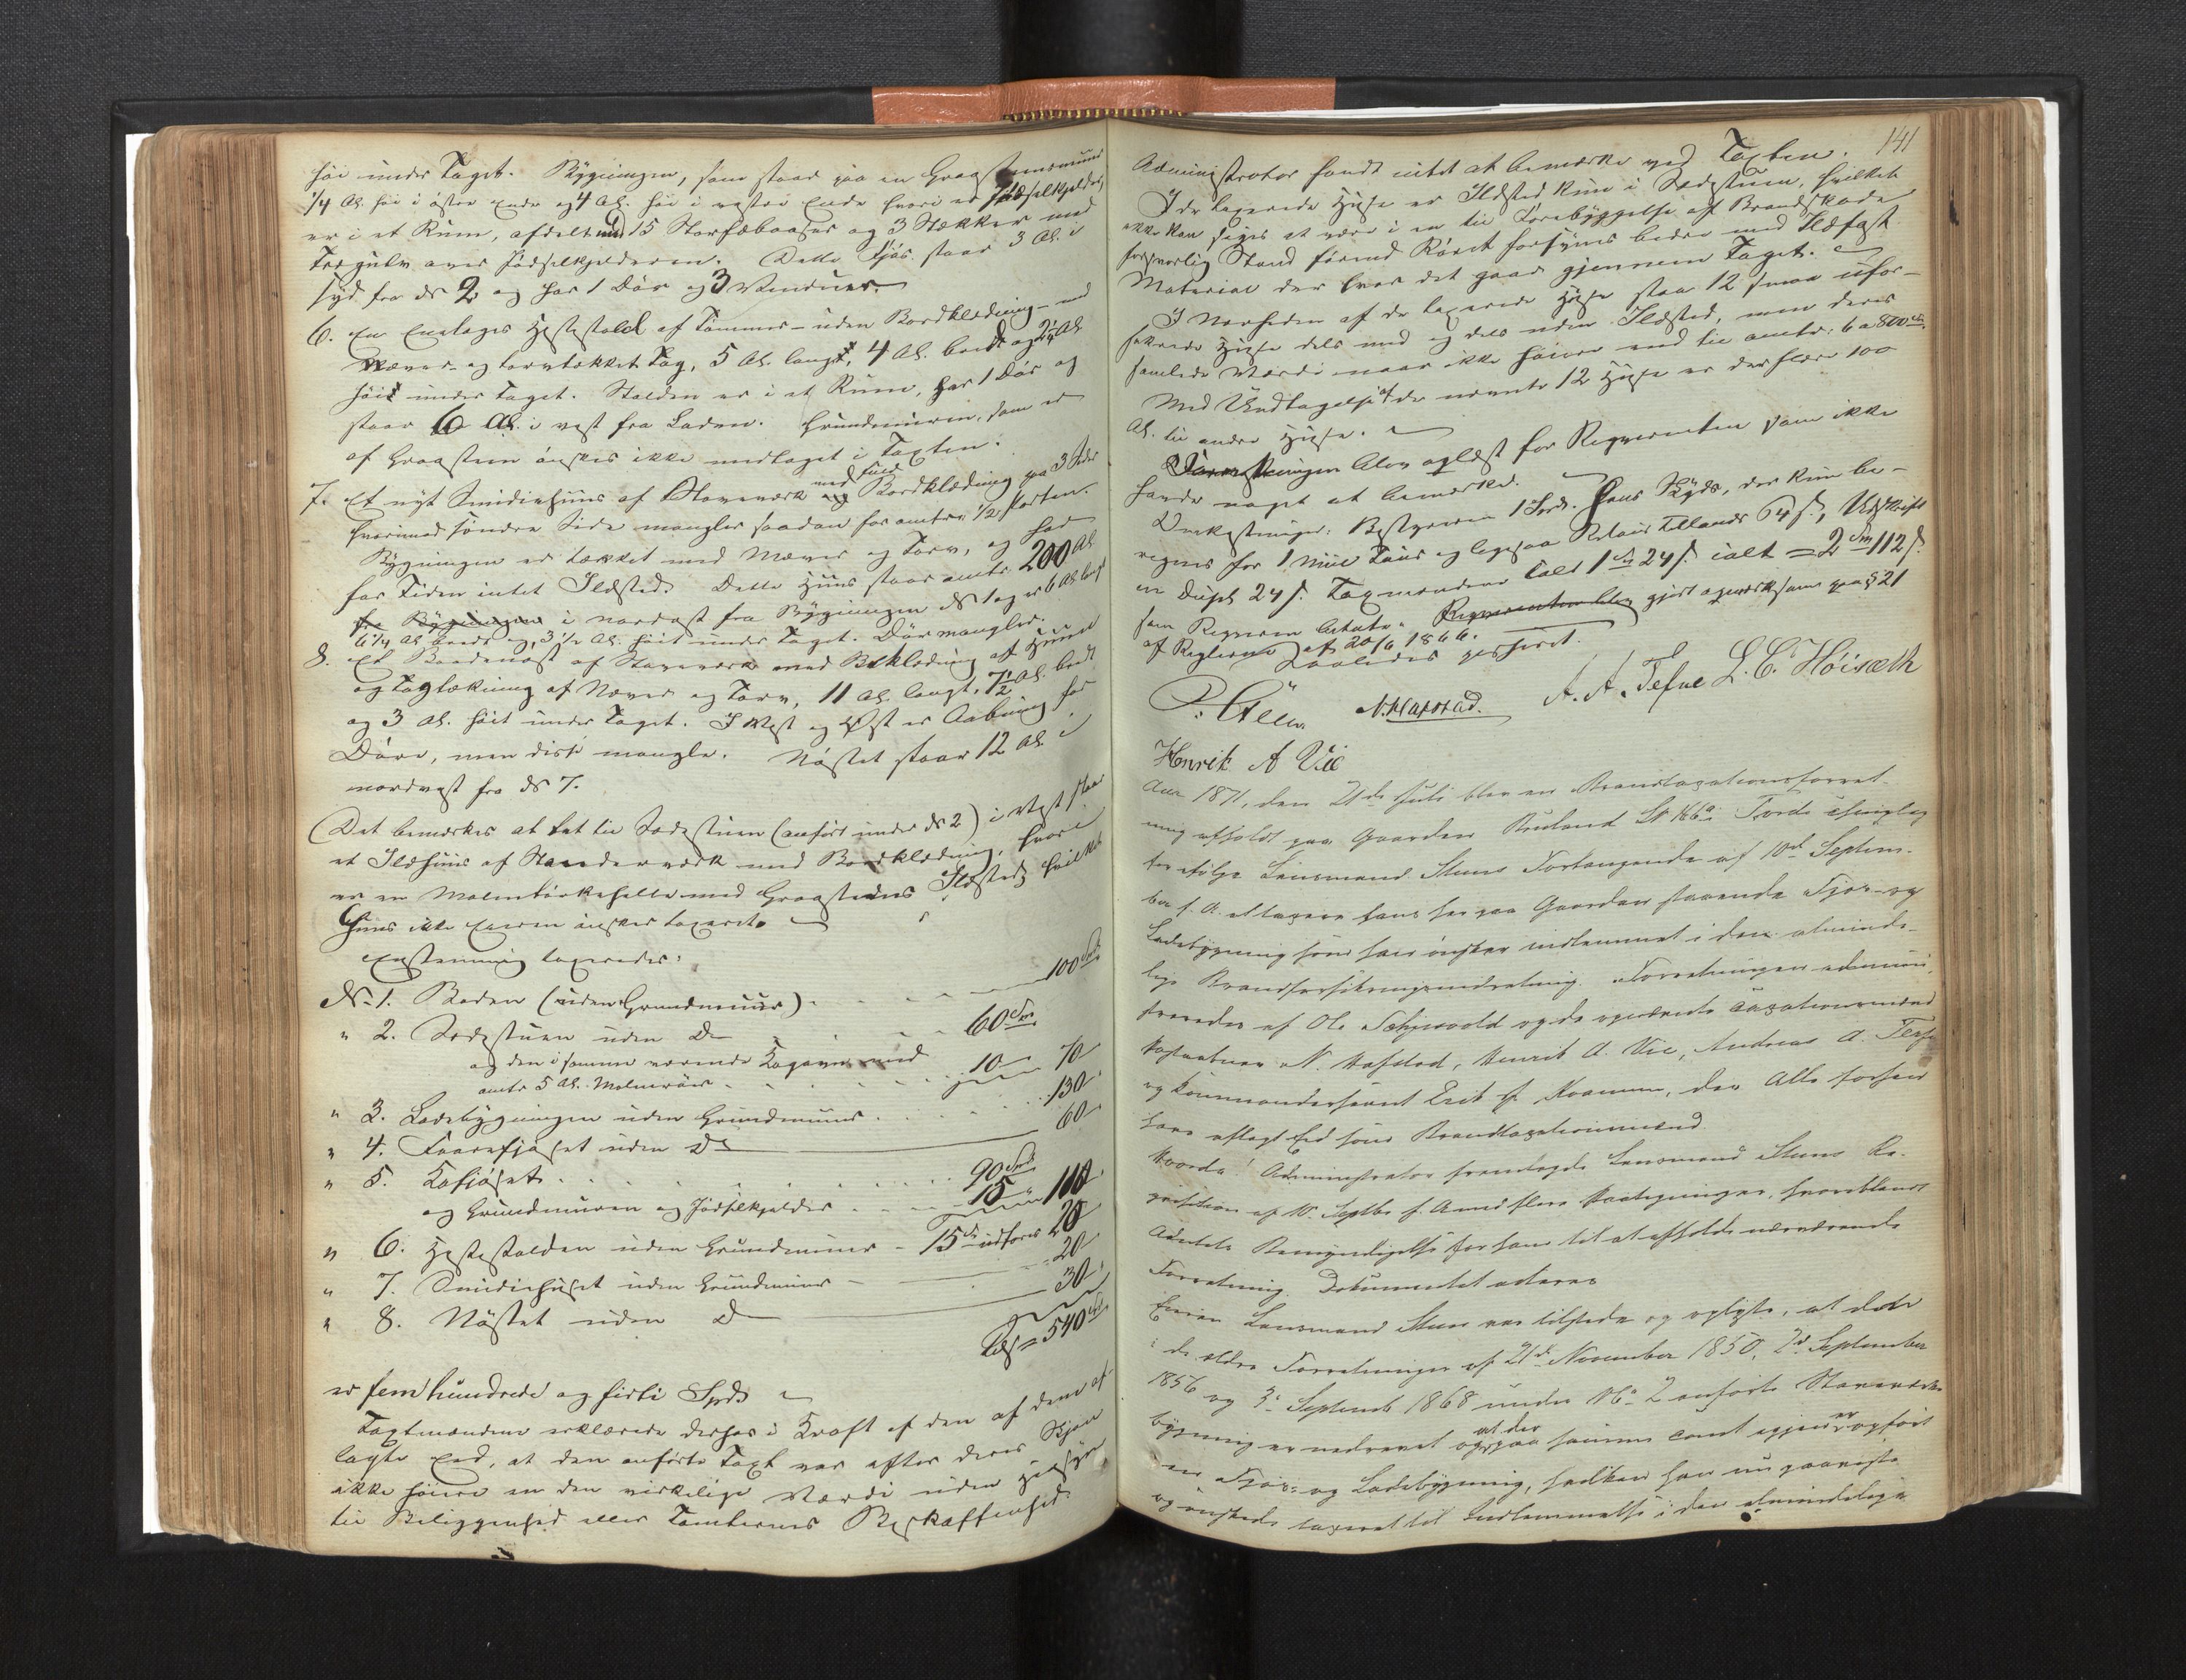 høi under Taget. Bygningen, som staar paa en Graasteensmuur
1/4 Al. høi i østre Ende og 4 Al. høi i vestre Ende hvori er Gjødselkjelder,
er i et Rum, afdelt med 15 Storfæbaaser og 3 Stækker med
Trægulv over Gjødselkjelderen. Dette Fjøs staar 3 Al. i
syd fra No 2 og har 1 Dør og 3 Vinduer.
6. En Enetages Hestestald af Tømmer uden Bordklædning med
Næver- og torvtækket Tag, 5 Al. langt, 4 Al. bredt og 2 1/2 Al.
høit under Taget. Stalden er i et Rum, har 1 Dør og
staar 6 Al. i vest fra Laden. Grundmuren, som er
af Graasteen ønskes ikke medtaget i Taxten.
7. Et nyt Smidiehuus af Stavværk med fuld Bordklædning paa 3 Sider
hvorimod søndre Side mangler saadan for omtr. 1/2 Parten.
Bygningen er tækket med Næver og Torv, og har
for Tiden intet Ildsted. Dette Huus staar omtr. 200 Al.
fra Bygningen i nordost fra Bygningen No 1 og er 6 Al. langt
6 1/4 Al. bredt og 3 1/2 Al. høit under Taget. Dør mangler.
8. Et Baadenøst af Stavværk med Beklædning af
og Tagtækning af Næver og Torv, 11 Al. langt, 7 1/2 Al. bredt
og 3 Al. høit under Taget. I Vest og Øst er Aabning for
Døre, men disse mangle. Nøstet staar 12 Al. i
nordvest fra No 7.
(Det bemærkes at tæt til Sædestuen (anført under No 2) i Vest staar
et Ildhuus af Standerværk med Bordklædning, hvori
er en Maltørkehelle med Graasteens Ildsted, hvilket
Huus ikke Eieren ønsker taxeret.
Gjenstanden taxeredes:
No 1. Boden (uden Grundmuur) 100 Spd
" 2. Sædestuen uden Do 60 Spd
og den i samme værende Kogeovn med
omtr 5 Al. Malmrør 10 70
" 3. Ladebygningen uden Grundmuur 130
" 4. Faarefjøset uden Do 60
" 5. Kofjøset 90 Spd
og Grundmuren og Gjødselkjelder 15 110
" 6. Hestestalden uden Grundmuur 15 Spd udføres 20
" 7. Smidiehuset uden Grundmuur 20
" 8. Nøstet uden Do 30
Tils = 540 Spd
er fem hundrede og firti Spd
Taxtmændene erklærede derhos i Kraft af den af dem af-
lagte Eed, at den anførte Taxt var efter deres Skjøn
ikke høiere en den virkelige Værdi uden Hensyn
til Beliggenhed eller Tomternes Beskaffenhed.
141
Administrator fandt intet at bemærke ved Taxten.
I de taxerede Huse er Ildsted kun i Sædestuen, hvilket
ikke kan siges at være i en til Forebyggelse af Brandskade
forsvarlig Stand førend Røret forsynes bedre med Ildfast
Materiale der hvor det gaar gjennem Taget.
I Nærheden af de taxerede Huse staa 12 smaa ufor-
sikrede Huse dels med og dels uden Ildsted, men deres
samlede Værdi naar ikke høiere end til omtr. 6 a 800 Spd.
Med Undtagelse af de nævnte 12 Huse er der flere 100
Al. til andre Huse.
Forretningen blev oplæst for Reqvirenten som ikke
havde noget at bemærke.
Omkostninger: Bestyreren 1 Spd. Hans Skyds, der kun be-
regnes for 1 Miil Tour og ligesaa Retour tillands 64 s, Udskrift
in duplo 24 s. Taxtmændene Talt 1 Spd 24 s. ialt = 2 Spm 112 s.
som Reqviren betalte. Reqvirenten blev gjort opmærksom paa § 21
af Reglerne af 20/6 1866.
Saaledes passeret.
N. Hafstad. A. A. Tefre L. C. Høisæth
Henrik A Vie
Aar 1871, den 21de Juli blev en Brandtaxationsforret-
ning afholdt paa Gaarden Bruland Lb 166a i Førde Thinglag
til følge Lensmand Stuns Forlangende af 10de Septem-
ber f. A. at taxere hans her paa Gaarden staaende Fjøs- og
Ladebygning som han ønsker indlemmet i den alminde-
lige Brandforsikringsindretning. Forretningen admini-
streredes af Ole Schjevold og de opnævnte Taxationsmænd
N. Hafstad, Henrik A. Vie, Andreas A. Tefre
og Kommandersergent Erik J. Kvamme, der Alle forhen
have aflagt Eed som Brandtaxationsmænd.
Administrator fremlagde Lensmand Stuns Re-
qvisition af 10. Septbr f. A. med flere Paategninger, hvoriblandt
Amtets Bemyndigelse for ham til at afholde nærværende
Forretning. Dokumentet vedtages
Eieren Lensmand Stuns var tilstede og oplyste, at det
i de ældre Forretninger af 21de November 1850, 2de September
1856 og 3de Septemb 1868 under No 2 anførte Stavværks
bygning er nedrevet og at der paa samme Tomt igjen er opført
en Fjøs- og Ladebygning, hvilken han nu paaviste
og ønskede taxeret til Indlemmelse i den almindelige